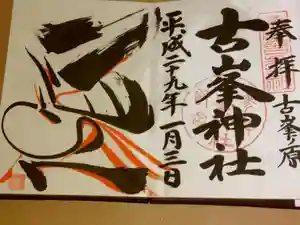 奉拝
古峯ノ原
古峯神社
平成二十九年一月三日